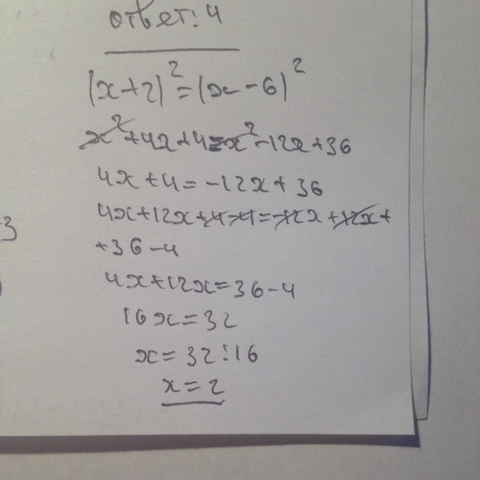 ответ: 4
(x+2)²=(x-6)²
x²+4x+4=x²-12x+36
4x+4=-12x+36
4x+12x+4-4=-12x+12x+
+36-4
3
4x+12x=36-4
16x=32
x=32:16
x=2